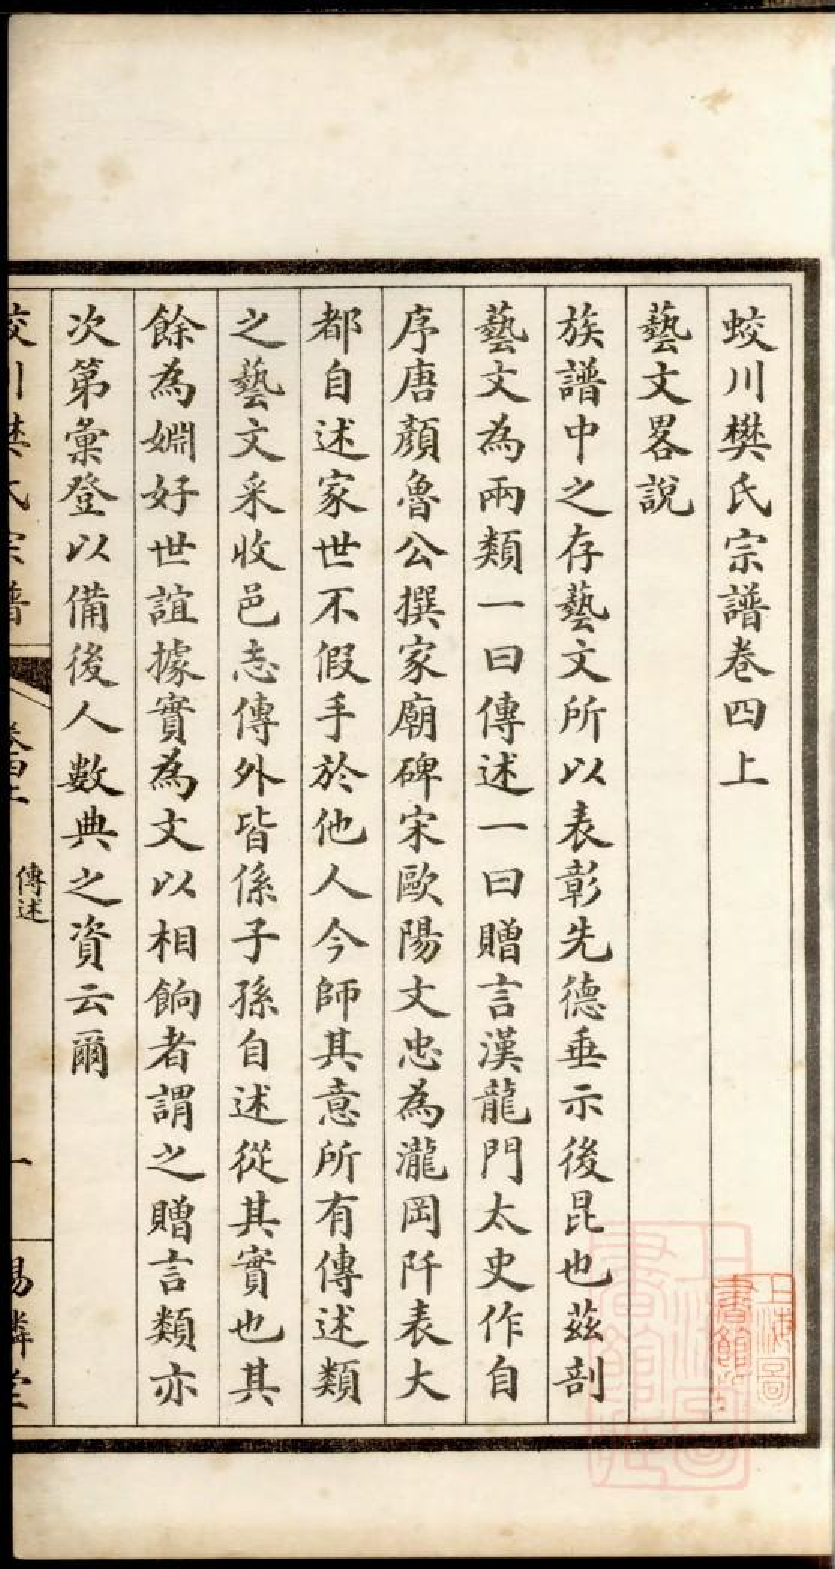 蛟川樊氏宗譜卷四上
藝文畧說
族譜中之存藝文所以表彰先德垂示後昆也茲剖
藝文為兩類一曰傳述一曰贈言漢龍門太史作自
序唐顏魯公撰家廟碑宋歐陽文忠為瀧岡阡表大
都自述家世不假手於他人今師其意所有傳述類
之藝文采收邑志傳外皆係子孫自述從其實也其
餘為婣好世誼據實為文以相餉者謂之贈言類亦
次第彙登以備後人數典之資云爾
蛟川樊氏宗譜
卷四上
傳述
一
上海圖
書館所
上海圖
書館藏